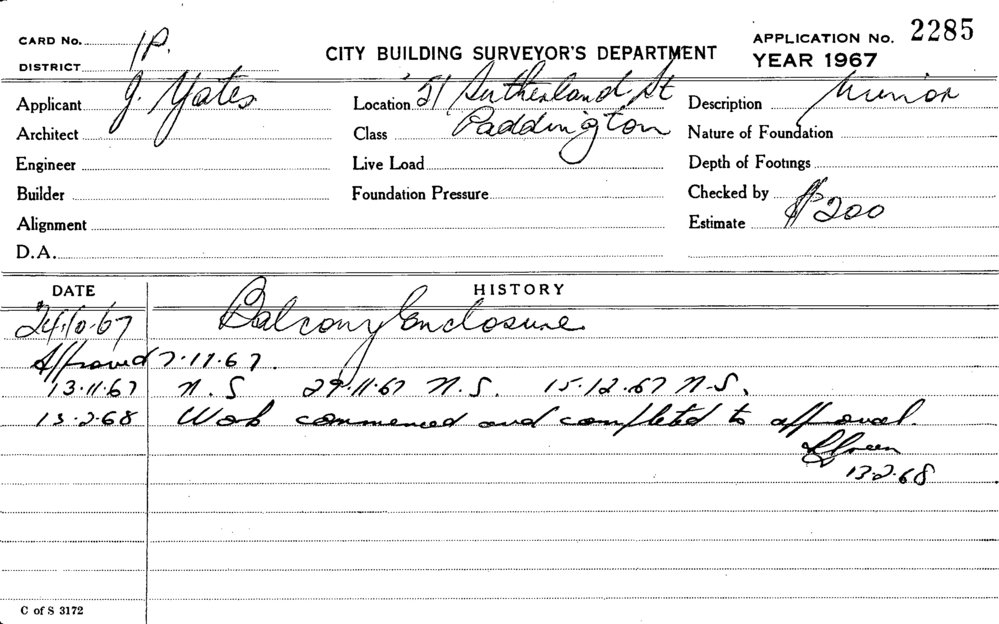 CARD No. 1P.
DISTRICT
CITY BUILDING SURVEYOR'S DEPARTMENT
APPLICATION No. 2285
YEAR 1967
Applicant J. Yates
Location 51 Sutherland St
Description Minor
Architect
Class Paddington
Nature of Foundation
Engineer
Live Load
Depth of Footings
Builder
Foundation Pressure
Checked by
Alignment
Estimate $200
D.A.
DATE HISTORY
24.10.67 Balcony Enclosure
Approved 7.11.67.
13.11.67 N.S 29.11.67 N.S. 15.12.67 N.S.
13.2.68 Work commenced and completed to approval.
13.2.68
C of S 3172